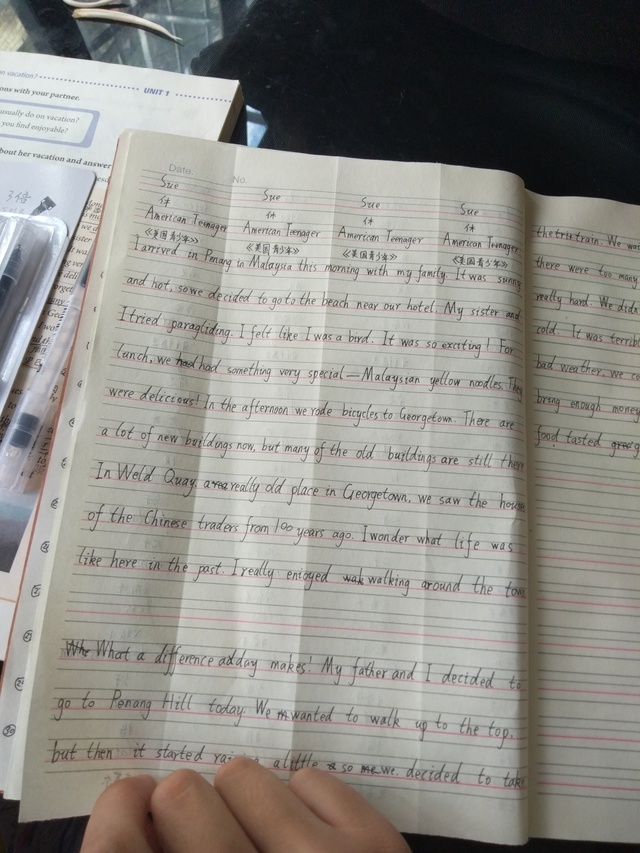 on vacation?
UNIT 1
ons with your partner.
usually do on vacation?
you find enjoyable?
bout her vacation and answer
3倍
Date. No.
Sue Sue Sue Sue
休 休 休 休
American Teenager American Teenager American Teenager American Teenager
《美国青少年》 《美国青少年》 《美国青少年》 《美国青少年》
I arrived in Penang in Malaysia this morning with my family. It was sunny
and hot, so we decided to go to the beach near our hotel. My sister and
I tried paragliding. I felt like I was a bird. It was so exciting! For
lunch, we had had something very special—Malaysian yellow noodles. They
were delicious! In the afternoon we rode bicycles to Georgetown. There are
a lot of new buildings now, but many of the old buildings are still there
In Weld Quay, area really old place in Georgetown, we saw the houses
of the Chinese traders from 100 years ago. I wonder what life was
like here in the past. I really enjoyed wak walking around the town
Whe What a difference adday makes! My father and I decided to
go to Penang Hill today. We wanted to walk up to the top,
but then it started raining a little so we decided to take
the train. We wa
there were too many
really hard. We didn
cold. It was terribl
bad weather, we co
bring enough money
food tasted g